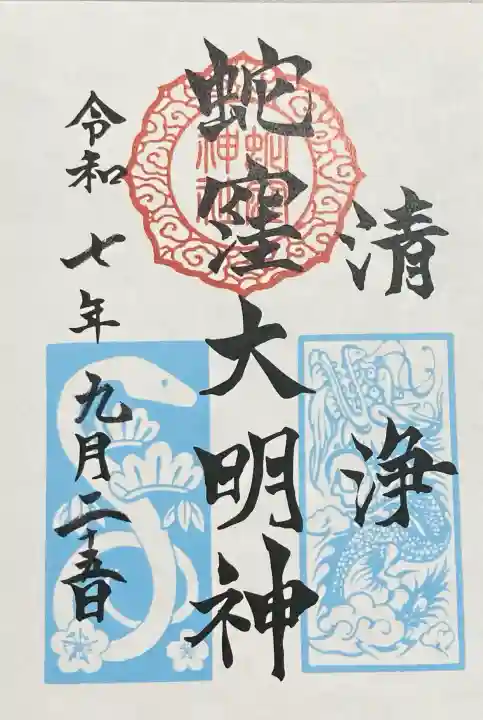 清浄
蛇窪大明神
蛇窪神社
令和七年九月二十五日